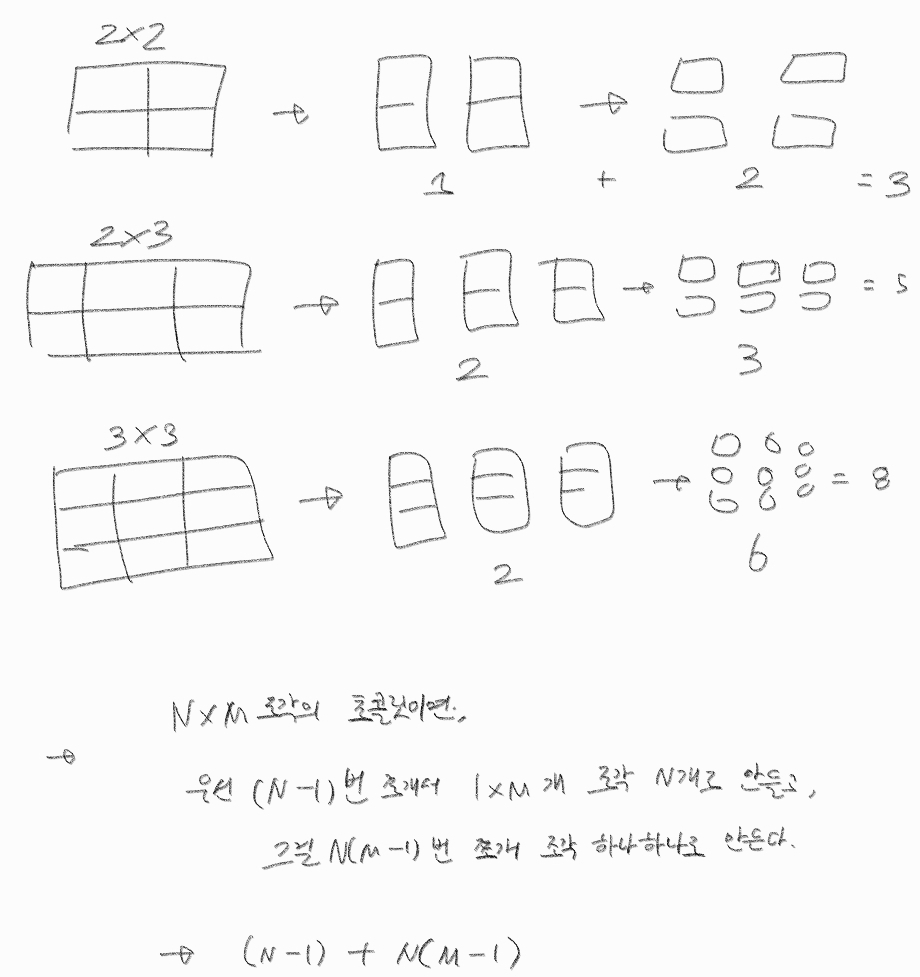 2×2
→ → 
1 + 2 = 3
2×3
→ → = 5
2 3
3×3
→ → = 8
2 6
N×M 조각의 초콜릿이면,
→
우선 (N-1)번 쪼개서 1×M개 조각 N개로 만들고,
그걸 N(M-1)번 쪼개 조각 하나하나로 만든다.
→ (N-1) + N(M-1)